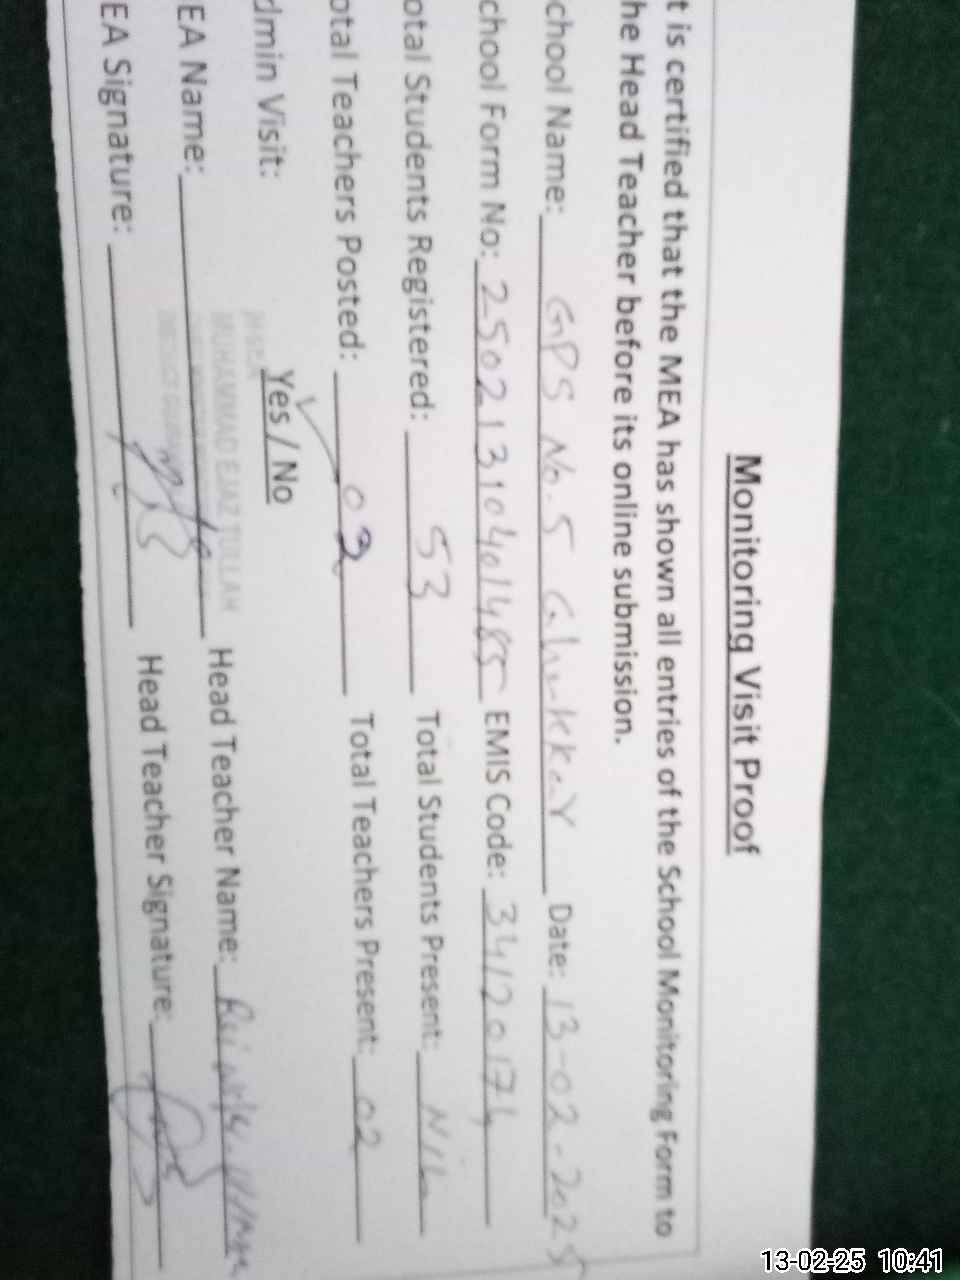 Monitoring Visit Proof
t is certified that the MEA has shown all entries of the School Monitoring Form to
he Head Teacher before its online submission.
chool Name: GPS No.5 Date: 13-02-2025
chool Form No: 25021310401485 EMIS Code: 34120174
otal Students Registered: 53 Total Students Present: Nil
otal Teachers Posted: 02 Total Teachers Present: 02
dmin Visit: Yes / No
MUHAMMAD EJAZ TULLAH
EA Name: Head Teacher Name:
EA Signature: Head Teacher Signature:
13-02-25 10:41